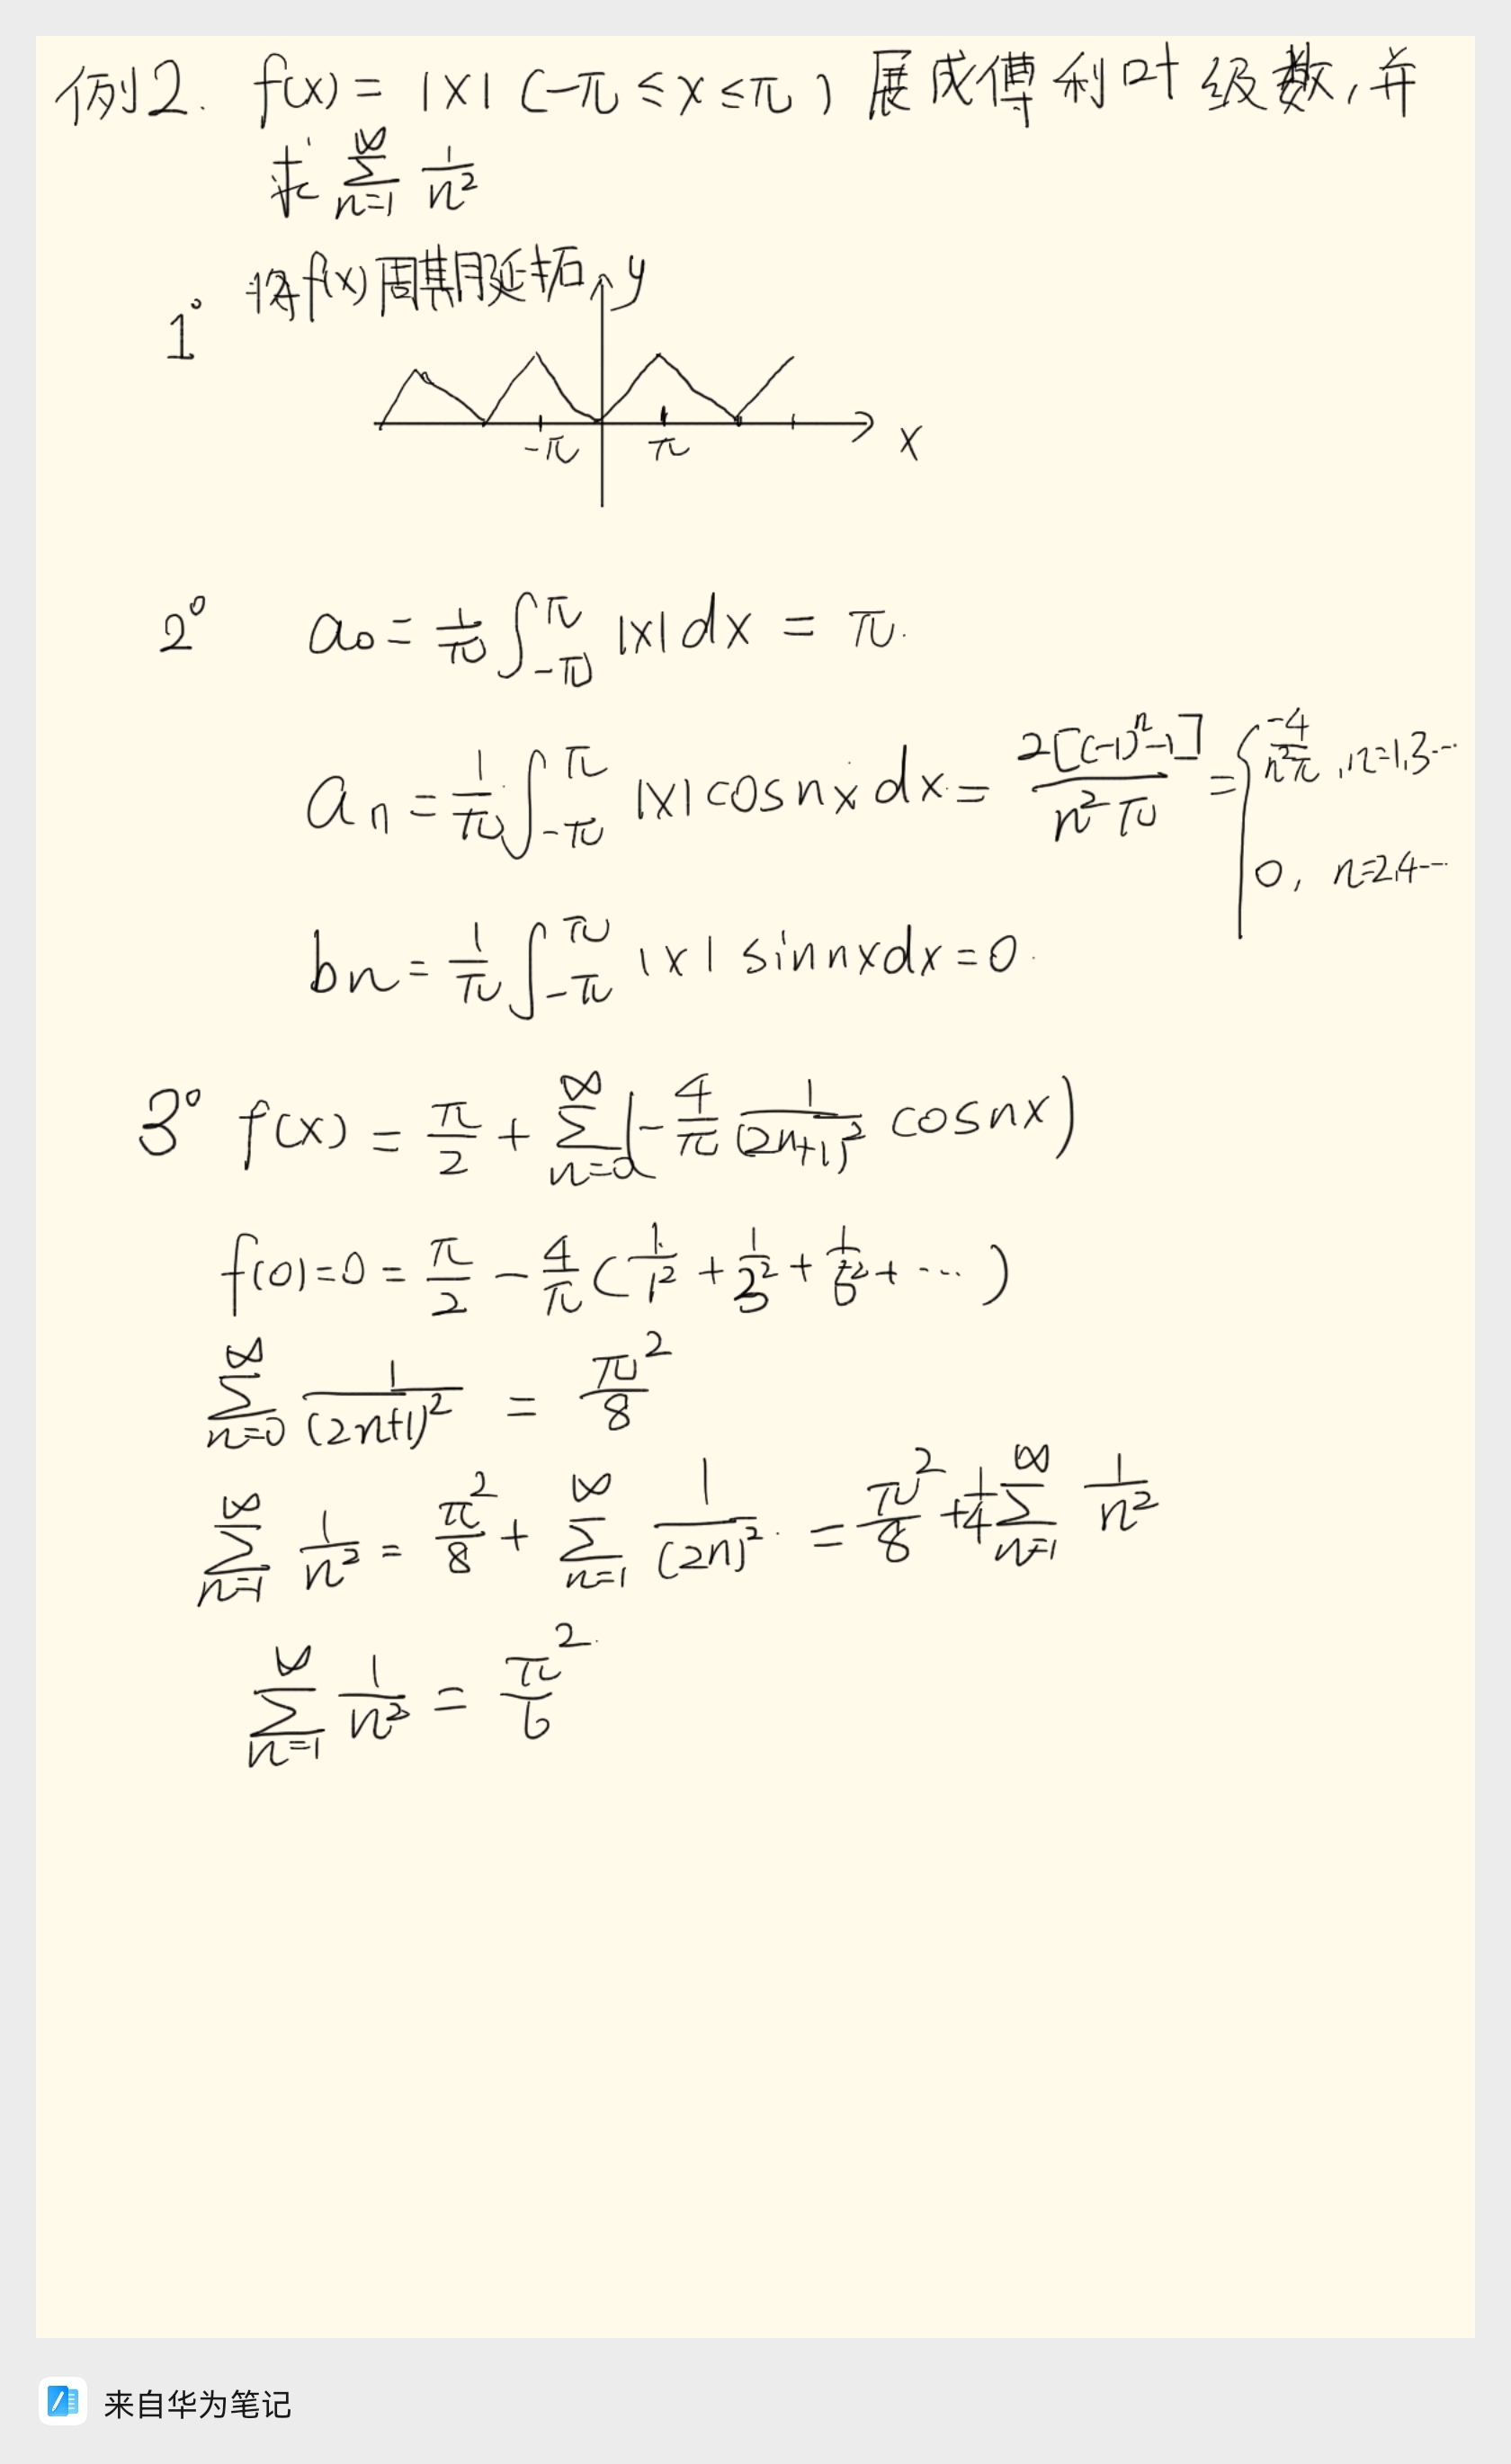 例2. f(x) = |x| (-π ≤ x ≤ π) 展成傅利叶级数,并
求 ∑_{n=1}^{∞} 1/n²
1° 将f(x)周期延拓 y
-π π x
2° a₀ = 1/π ∫_{-π}^{π} |x| dx = π.
aₙ = 1/π ∫_{-π}^{π} |x| cosnx dx = 2[(-1)ⁿ-1]/(n²π) = { -4/(n²π), n=1,3…
0, n=2,4…
bₙ = 1/π ∫_{-π}^{π} |x| sinnxdx = 0.
3° f(x) = π/2 + ∑_{n=0}^{∞} (-4/π 1/(2n+1)² cosnx)
f(0)=0= π/2 - 4/π (1/1² + 1/3² + 1/5² + …)
∑_{n=0}^{∞} 1/(2n+1)² = π²/8
∑_{n=1}^{∞} 1/n² = π²/8 + ∑_{n=1}^{∞} 1/(2n)² = π²/8 + 1/4 ∑_{n=1}^{∞} 1/n²
∑_{n=1}^{∞} 1/n² = π²/6
来自华为笔记